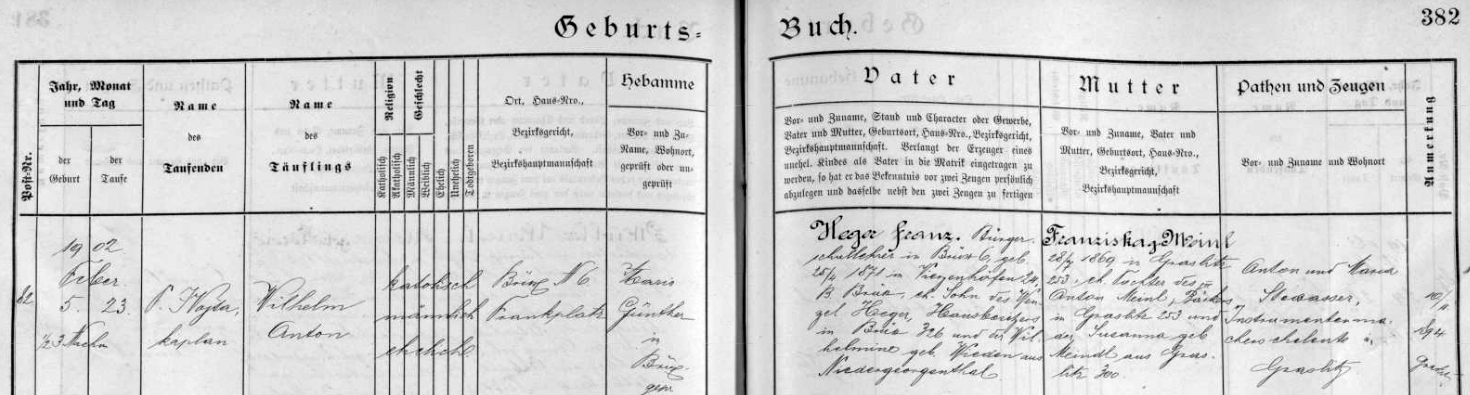 Geburts-
Buch.
382
Post-Nr.
Jahr, Monat
und Tag
der
Geburt
der
Taufe
Name
des
Taufenden
Name
des
Täuflings
Religion
Katholisch
Akatholisch
Geschlecht
Männlich
Weiblich
Ehelich
Unehelich
Todtgeboren
Ort, Haus-Nro.,
Bezirksgericht,
Bezirkshauptmannschaft
Hebamme
Vor- und Zu-
Name, Wohnort,
geprüft oder un-
geprüft
Vater
Vor- und Zuname, Stand und Character oder Gewerbe,
Vater und Mutter, Geburtsort, Haus-Nro., Bezirksgericht,
Bezirkshauptmannschaft. Verlangt der Erzeuger eines
unehel. Kindes als Vater in die Matrik eingetragen zu
werden, so hat er das Bekenntnis vor zwei Zeugen persönlich
abzulegen und dasselbe nebst den zwei Zeugen zu fertigen
Mutter
Vor- und Zuname, Vater und
Mutter, Geburtsort, Haus-Nro.,
Bezirksgericht,
Bezirkshauptmannschaft
Pathen und Zeugen
Vor- und Zuname und Wohnort
Anmerkung
82
1902
5. 23.
kaplan
Wilhelm
Anton
katolisch
männlich
ehelich
Brüx N 6
Frankplatz
Günther
in
Brüx
gepr
Heger Franz. Bürger-
schullehrer in Brüx 6, geb.
1871 in
B. Brüx, eh. Sohn des Wen-
zel Heger, Hausbesitzers
in Brüx 326 und der Wil-
helmine geb. Wieden aus
Niedergeorgenthal
Franziska, Meinl
1869 in Graslitz
253, eh. Tochter des
Anton Meinl, Bäckers
in Graslitz 253 und
der Susanna geb
Meindl aus Gras-
litz 300.
Anton und Maria
Stowasser,
Instrumentenma-
cherseheleute
Graslitz